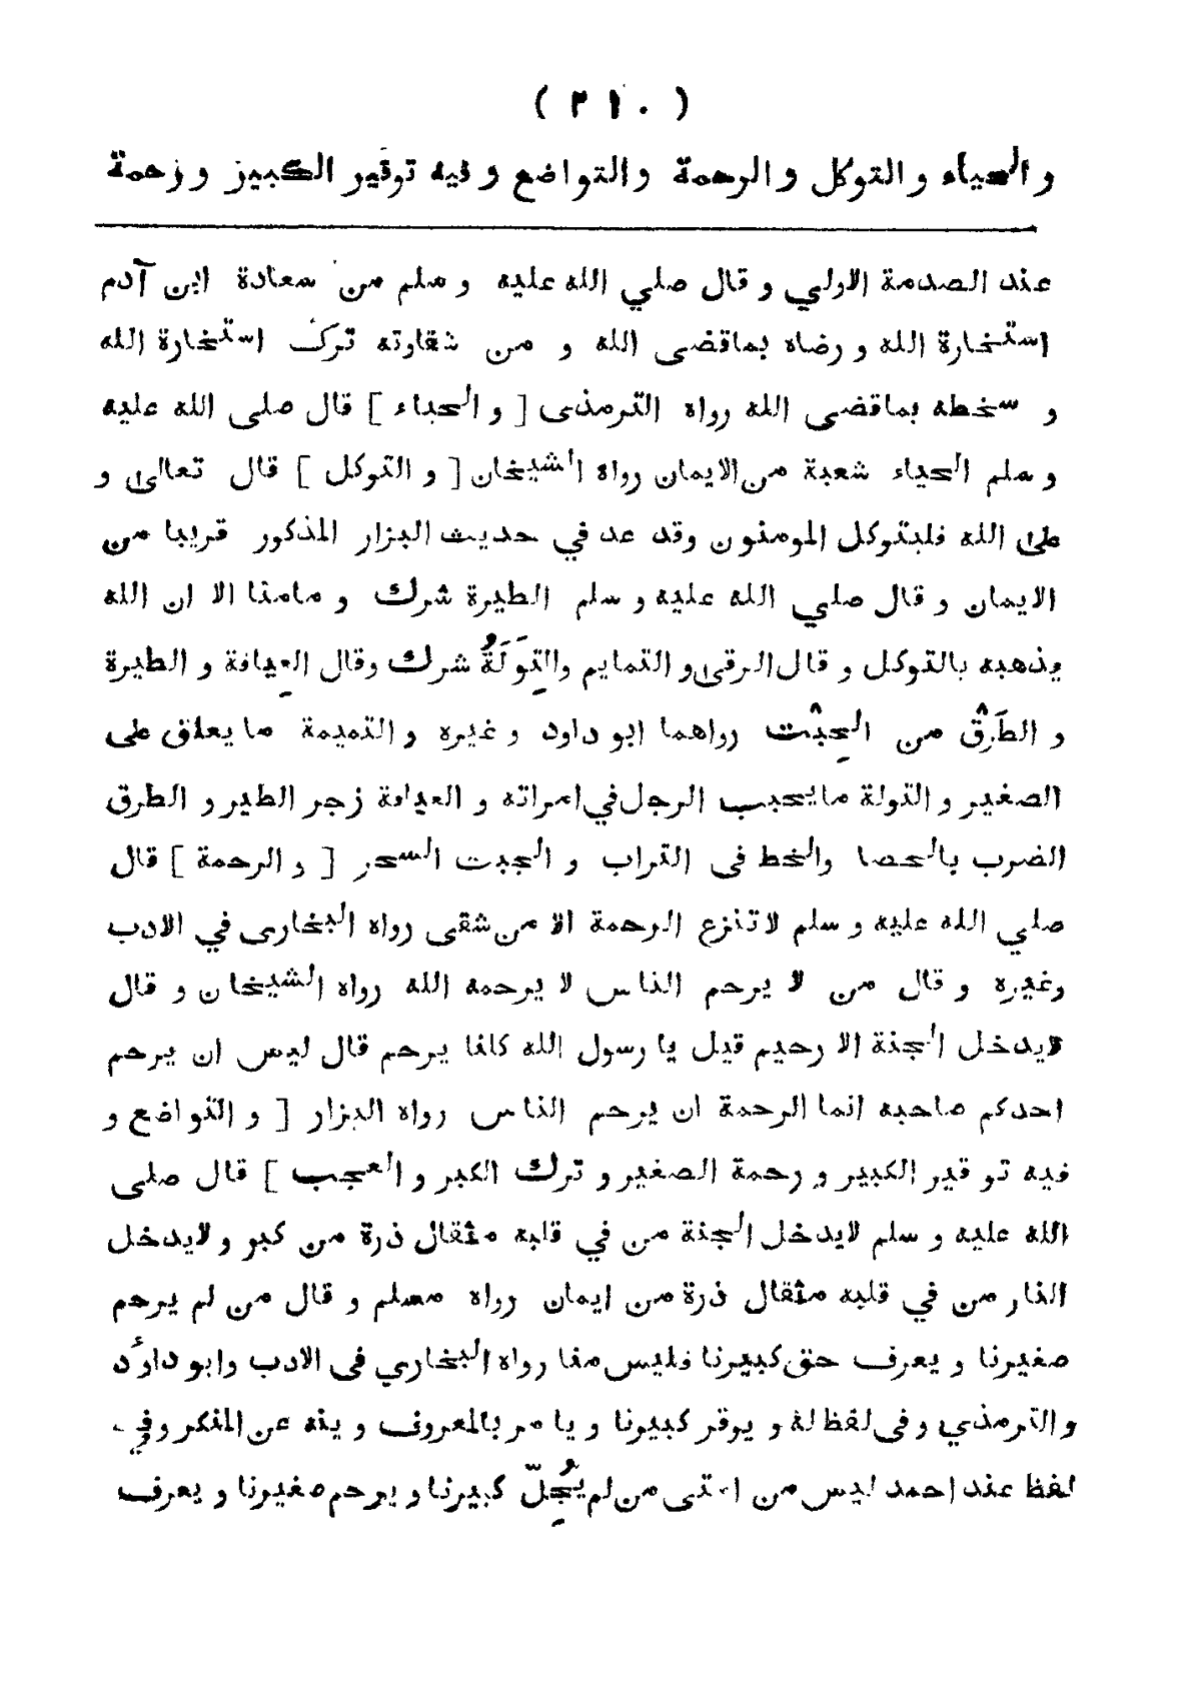 ( ٢١٠ )
والحياء والتوكل والرحمة والتواضع وفيه توقير الكبير ورحمة
عند الصدمة الاولي و قال صلي الله عليه و سلم من سعادة ابن آدم
استخارة الله و رضاه بماقضى الله و من شقاوته ترك استخارة الله
و سخطه بماقضى الله رواه الترمذى [ و الحياء ] قال صلى الله عليه
و سلم الحياء شعبة من الايمان رواه الشيخان [ و التوكل ] قال تعالى و
على الله فليتوكل المومنون وقد عد في حديث البزار المذكور قريبا من
الايمان و قال صلي الله عليه و سلم الطيرة شرك و مامنا الا ان الله
يذهبه بالتوكل و قال الرقى و التمايم والتِوَلَةُ شرك وقال العِيافة و الطيرة
و الطَرْق من الجِبْت رواهما ابو داود و غيره و التميمة ما يعلق على
الصغير و التولة مايحبب الرجل في امراته و العيافة زجر الطير و الطرق
الضرب بالحصا والخط فى التراب و الجبت السحر [ و الرحمة ] قال
صلي الله عليه و سلم لاتنزع الرحمة الا من شقى رواه البخارى في الادب
وغيره و قال من لا يرحم الناس لا يرحمه الله رواه الشيخان و قال
لايدخل الجنة الا رحيم قيل يا رسول الله كلنا يرحم قال ليس ان يرحم
احدكم صاحبه انما الرحمة ان يرحم الناس رواه البزار [ و التواضع و
فيه توقير الكبير و رحمة الصغير و ترك الكبر و العجب ] قال صلى
الله عليه و سلم لايدخل الجنة من في قلبه مثقال ذرة من كبر و لايدخل
النار من في قلبه مثقال ذرة من ايمان رواه مسلم و قال من لم يرحم
صغيرنا و يعرف حق كبيرنا فليس منا رواه البخاري فى الادب وابو داؤد
والترمذي و فى لفظ له و يوقر كبيرنا و يا مر بالمعروف و ينه عن المنكر وفي
لفظ عند احمد ليس من امتى من لم يُجِلّ كبيرنا و يرحم صغيرنا و يعرف